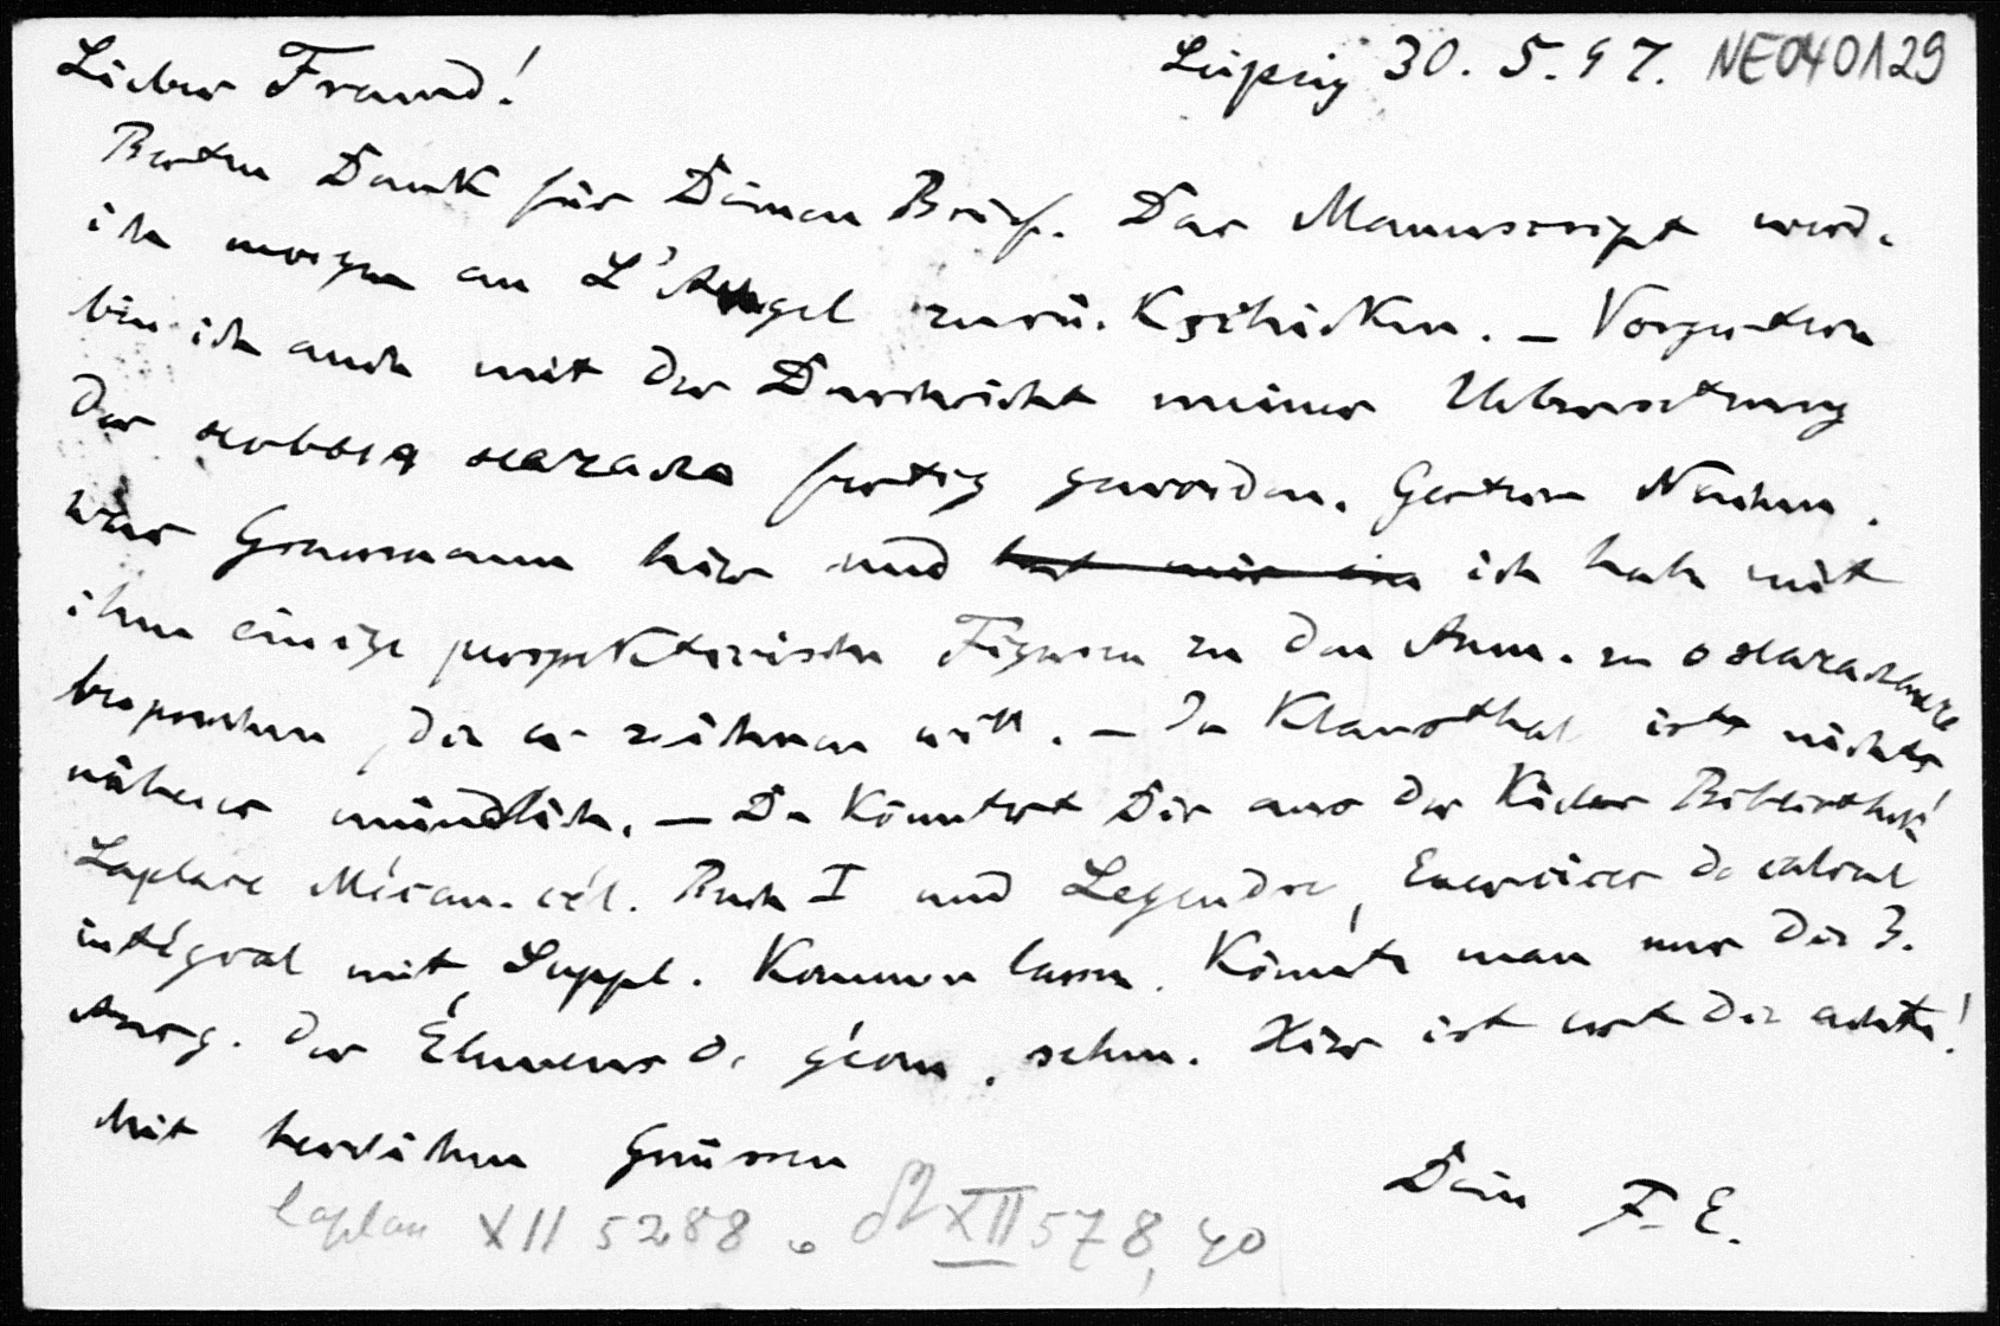 Leipzig 30. 5. 97. NE040129
Lieber Freund!
Besten Dank für Deinen Brief. Das Manuscript werde
ich morgen an L'Angel zurückschicken. – Vorgestern
bin ich auch mit der Durchsicht meiner Uebersetzung
der новыя начала fertig geworden. Gestern Nachm.
war Grassmann hier und ich habe mit
ihm einige perspektivische Figuren zu den Anm. zu о началахъ
besprochen, die er zeichnen will. – In Klausthal ists nichts
näheres mündlich. – Du könntest Dir aus der Kieler Bibliothek
Laplace Mécan. cél. Buch I und Legendre, Exercices de calcul
intégral mit Suppl. kommen lassen. Könnte man nur die 3.
Ausg. der Élémens de géom. sehen. Hier ist erst die achte!
Mit herzlichen Grüssen
Dein F. E.
Laplace XII 5288 XII 578,40